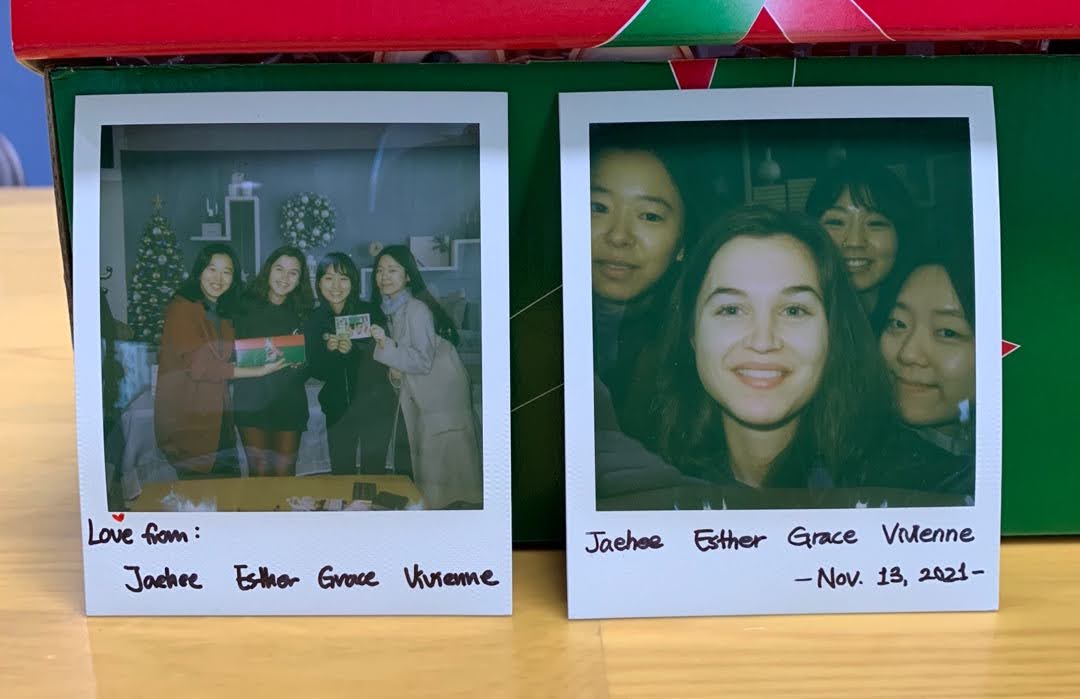 Love from:
Jaehee Esther Grace Vivienne
Jaehee Esther Grace Vivienne
-Nov. 13, 2021-